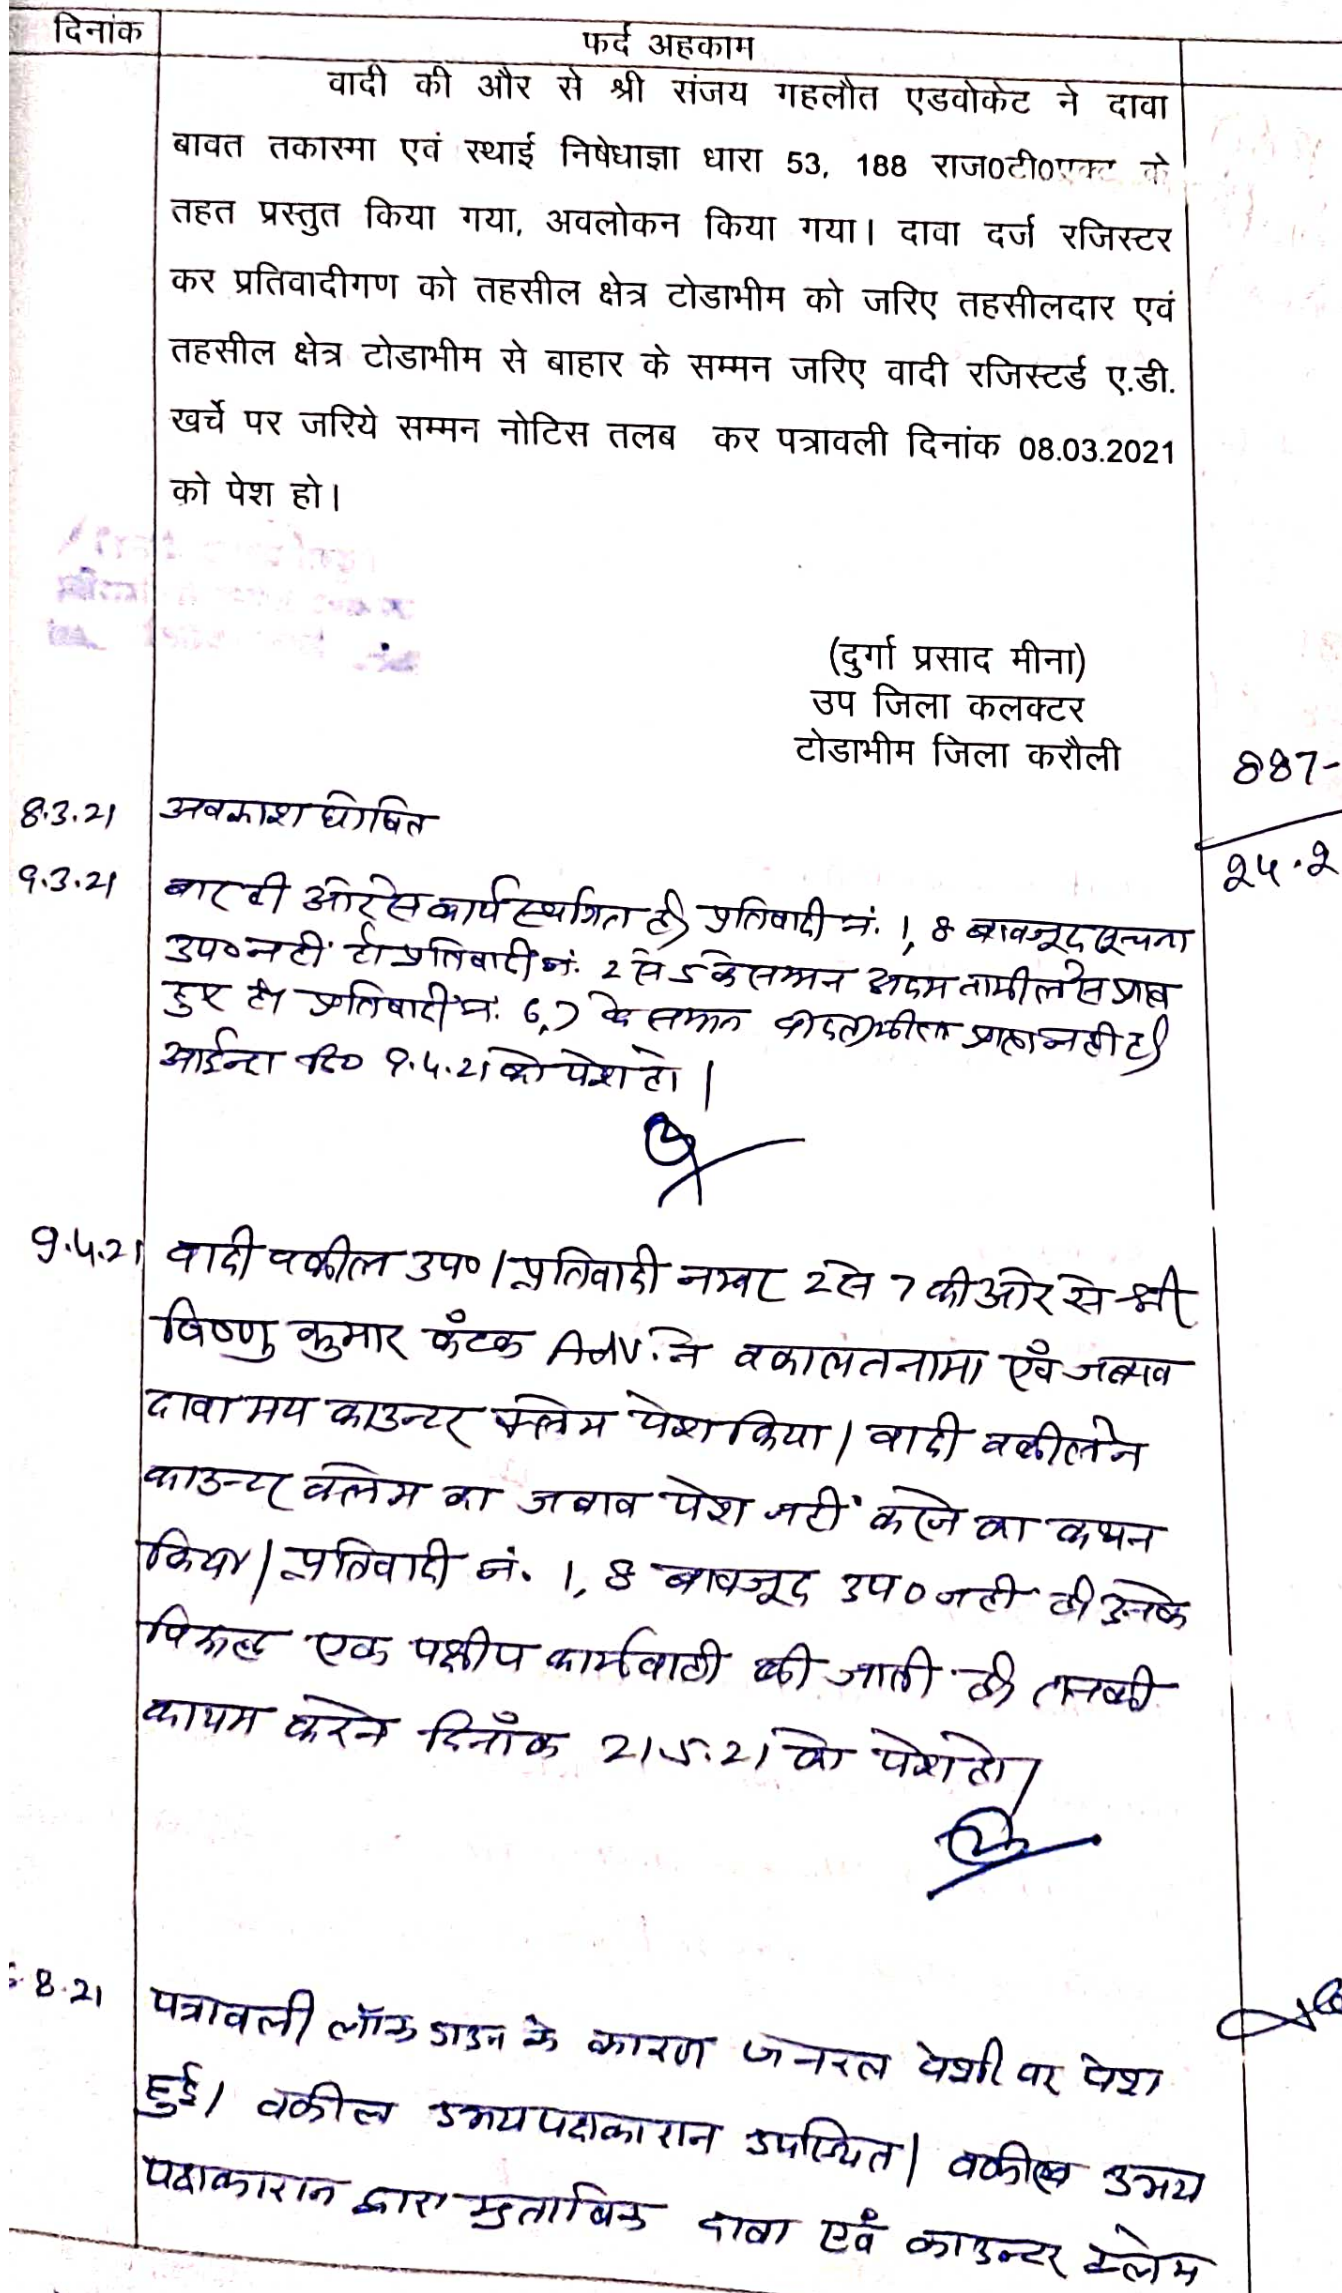 दिनांक
फर्द अहकाम
वादी की और से श्री संजय गहलौत एडवोकेट ने दावा
बावत तकास्मा एवं स्थाई निषेधाज्ञा धारा 53, 188 राज0टी0एक्ट के
तहत प्रस्तुत किया गया, अवलोकन किया गया। दावा दर्ज रजिस्टर
कर प्रतिवादीगण को तहसील क्षेत्र टोडाभीम को जरिए तहसीलदार एवं
तहसील क्षेत्र टोडाभीम से बाहार के सम्मन जरिए वादी रजिस्टर्ड ए.डी.
खर्चे पर जरिये सम्मन नोटिस तलब कर पत्रावली दिनांक 08.03.2021
को पेश हो।
(दुर्गा प्रसाद मीना)
उप जिला कलक्टर
टोडाभीम जिला करौली
887-
25.2
8.3.21 अवकाश घोषित
9.3.21 बार की ओर से कार्य स्थगित है। प्रतिवादी नं. 1, 8 बावजूद सूचना
उप० नहीं है। प्रतिवादी नं. 2 से 5 के सम्मन अदम तामील से प्राप्त
हुए है। प्रतिवादी नं. 6,7 के सम्मन प्राप्त नही है।
आईन्दा दि० 9.4.21 को पेश हो।
9.4.21 वादी वकील उप०। प्रतिवादी नम्बर 2 से 7 की ओर से श्री
विष्णु कुमार कँटक Adv. ने वकालतनामा एवँ जबाव
दावा मय काउन्टर क्लेम पेश किया। वादी वकील ने
काउन्टर क्लेम का जवाव पेश नहीं करने का कथन
किया। प्रतिवादी नं. 1, 8 बावजूद उप० नही है। उनके
विरूद्ध एक पक्षीय कार्यवाही की जाती है। तनकी
कायम करने दिनाँक 21.5.21 को पेश हो।
8.21 पत्रावली लॉक डाउन के कारण जनरल पेशी पर पेश
हुई। वकील उभयपक्षकारान उपस्थित। वकील उभय
पक्षकारान द्वारा मुताबिक दावा एवँ काउन्टर क्लेम